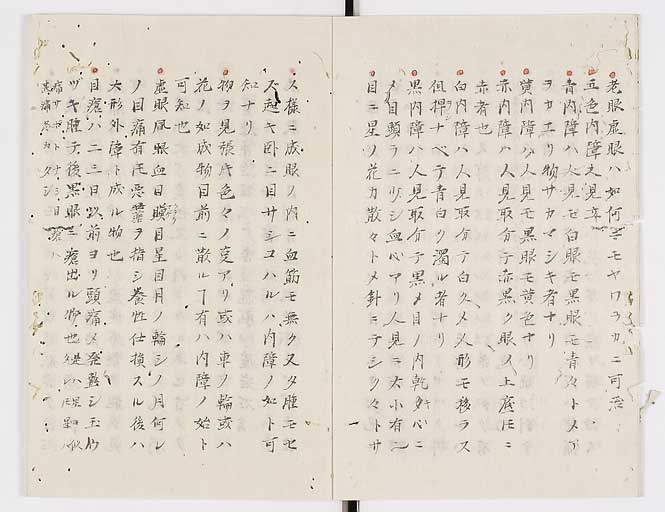 老眼虚眼ハ如何ニモヤワラカニ可治
五色内障之見立
青内障ハ人見モ白眼モ黒眼モ青々トメア
ヲカエリ物サカマシキ者ナリ
黄内障ハ人見モ黒眼モ黄色ナリ
赤内障ハ人見取分テ赤黒ク眼ノ上底
赤者也
白内障ハ人見取分テ白クメ人形モ移ラス
ナベテ青白ク濁ル者ナリ
黒内障ハ人見取分テ黒メ目ノ内乾タ
目頭ラニ少シ血心アリ人見ニ大小有
目ニ星ノ花カ散々トメ針ニテシク々トサ
ス様ニ成眼ノ内ニ血筋モ無ク又タ腫モセ
ス起キ臥ニ目サシコハルハ内障ノ如ト可
知ナリ
物ヲ見張氏色々ノ変アリ或ハ車ノ輪或ハ
花ノ如成物目前ニ散ル丁有ハ内障ノ始ト
可知也
虚眼風眼血目 星目月ノ輪シノ月何レ
ノ目痛有氏悪 ヲ指シ養性仕損スル後ハ
大形外障ト成ル物也
目瘡ハ二三日以前ヨリ頭痛メ発熱シ玉
ツキ腫テ後黒眼ニ瘡出ル物也